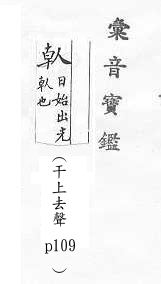 彙音寶鑑
倝 日始出光
倝也
(干上去聲
p109
)